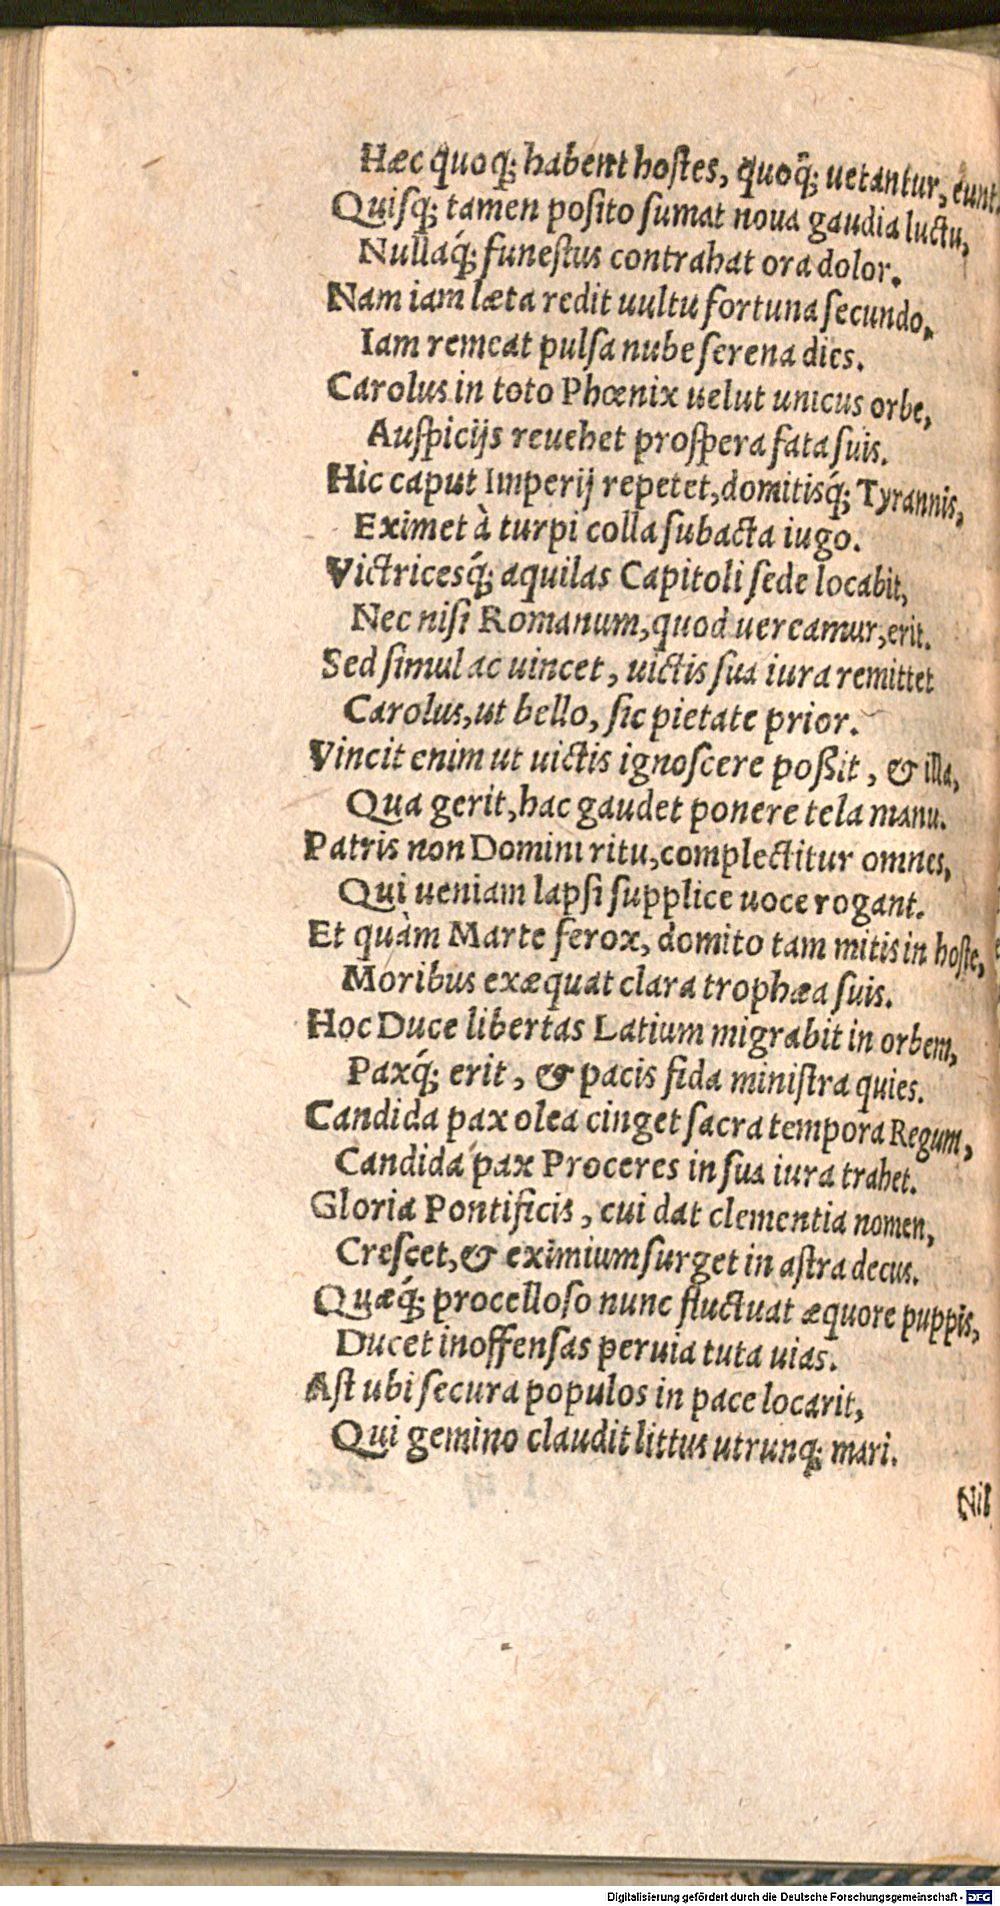 Hæc quoq; habent hostes, quoq̃; uetantur, eunt.
Quisq; tamen posito sumat noua gaudia luctu,
Nullaq́; funestus contrahat ora dolor.
Nam iam læta redit uultu fortuna secundo,
Iam remeat pulsa nube serena dies.
Carolus in toto Phœnix uelut unicus orbe,
Auspicijs reuehet prospera fata suis.
Hic caput Imperij repetet, domitisq́; Tyrannis,
Eximet à turpi colla subacta iugo.
Victricesq́; aquilas Capitoli sede locabit,
Nec nisi Romanum, quod uereamur, erit.
Sed simul ac uincet, uictis sua iura remittet
Carolus, ut bello, sic pietate prior.
Vincit enim ut uictis ignoscere poßit, & illa,
Qua gerit, hac gaudet ponere tela manu.
Patris non Domini ritu, complectitur omnes,
Qui ueniam lapsi supplice uoce rogant.
Et quàm Marte ferox, domito tam mitis in hoste,
Moribus exæquat clara trophæa suis.
Hoc Duce libertas Latium migrabit in orbem,
Paxq́; erit, & pacis fida ministra quies.
Candida pax olea cinget sacra tempora Regum,
Candida pax Proceres in sua iura trahet.
Gloria Pontificis, cui dat clementia nomen,
Crescet, & eximium surget in astra decus.
Quæq́; procelloso nunc fluctuat æquore puppis,
Ducet inoffensas peruia tuta uias.
Ast ubi secura populos in pace locarit,
Qui gemino claudit littus utrunq; mari.
Nil
Digitalisierung gefördert durch die Deutsche Forschungsgemeinschaft - DFG